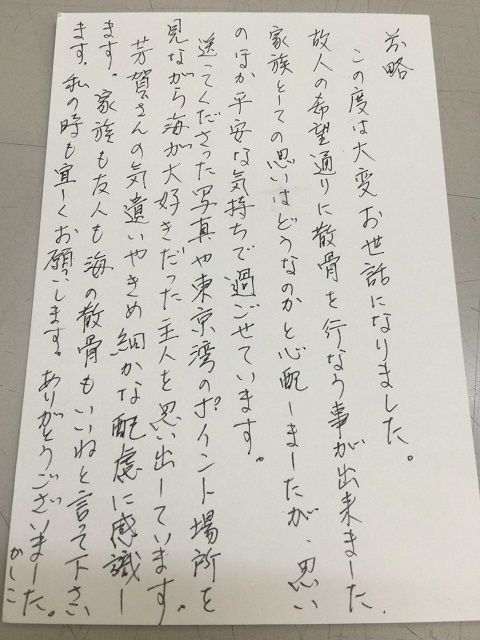 前略
この度は大変お世話になりました。
故人の希望通りに散骨を行なう事が出来ました。
家族としての思いはどうなのかと心配しましたが、思い
のほか平安な気持ちで過ごせています。
送ってくださった写真や東京湾のポイント場所を
見ながら海が大好きだった主人を思い出しています。
芳賀さんの気遣いやきめ細かな配慮に感謝し
ます。家族も友人も海の散骨もいいねと言って下さい
ます。私の時も宜しくお願いします。ありがとうございました。
かしこ